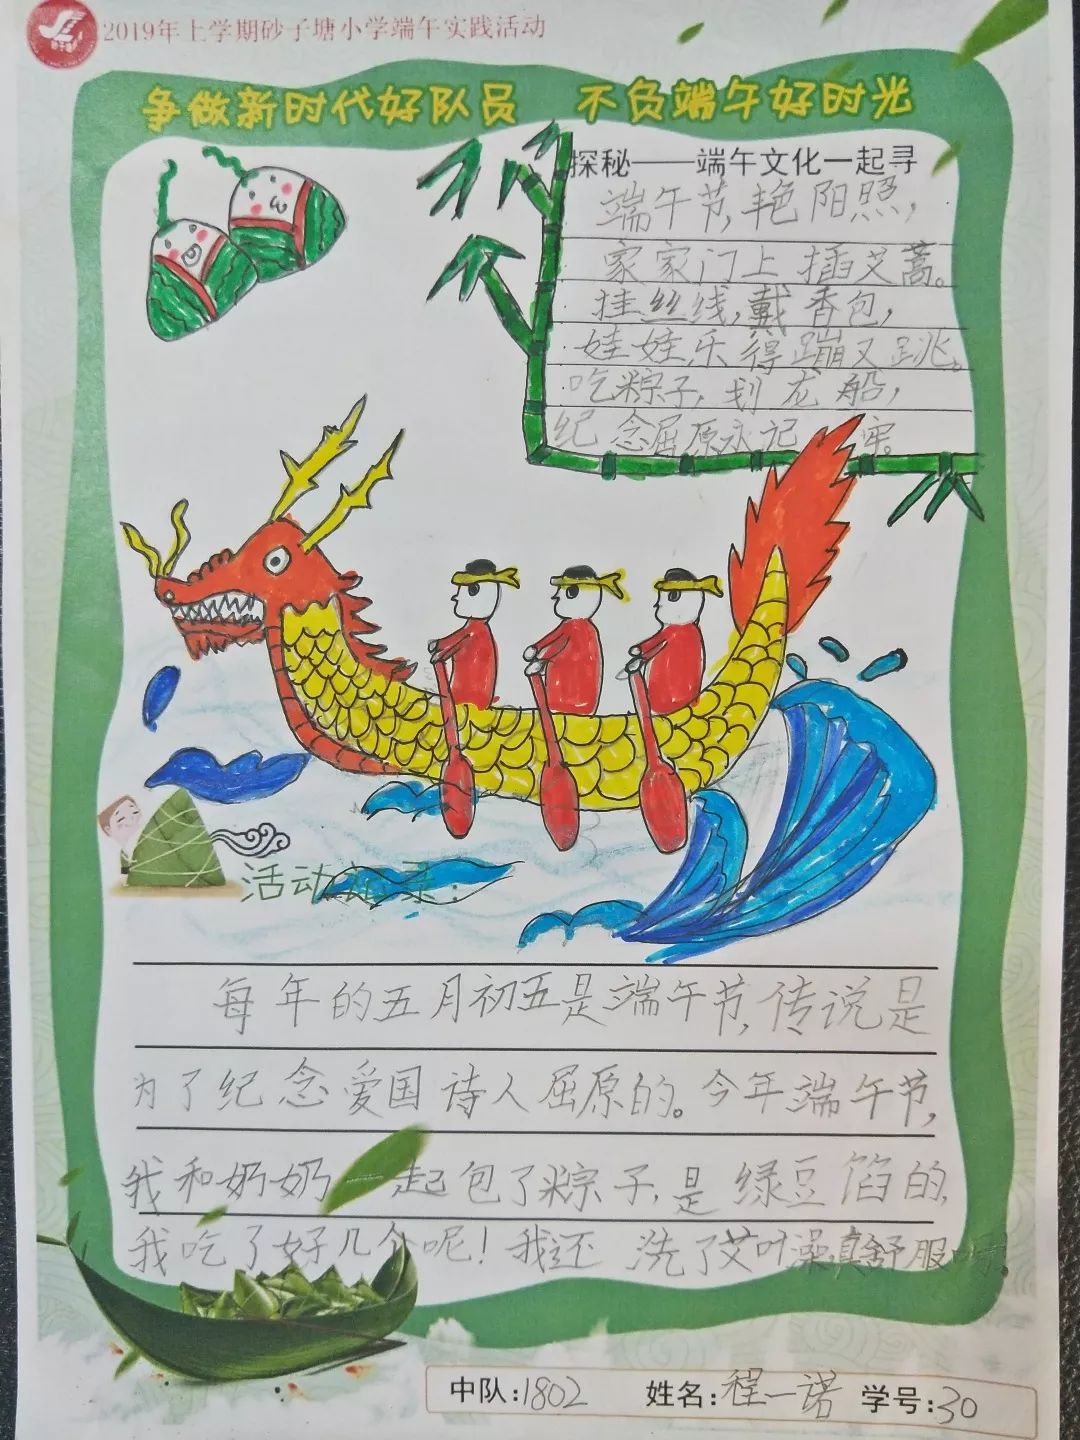 2019年上学期砂子塘小学端午实践活动
争做新时代好队员 不负端午好时光
探秘——端午文化一起寻
端午节,艳阳照,
家家门上插艾蒿。
挂丝线,戴香包,
娃娃乐得蹦又跳。
吃粽子,划龙船,
纪念屈原永记牢。
活动记录:
每年的五月初五是端午节,传说是
为了纪念爱国诗人屈原的。今年端午节,
我和奶奶一起包了粽子,是绿豆馅的,
我吃了好几个呢!我还洗了艾叶澡真舒服啊。
中队:1802 姓名:程一诺 学号:30